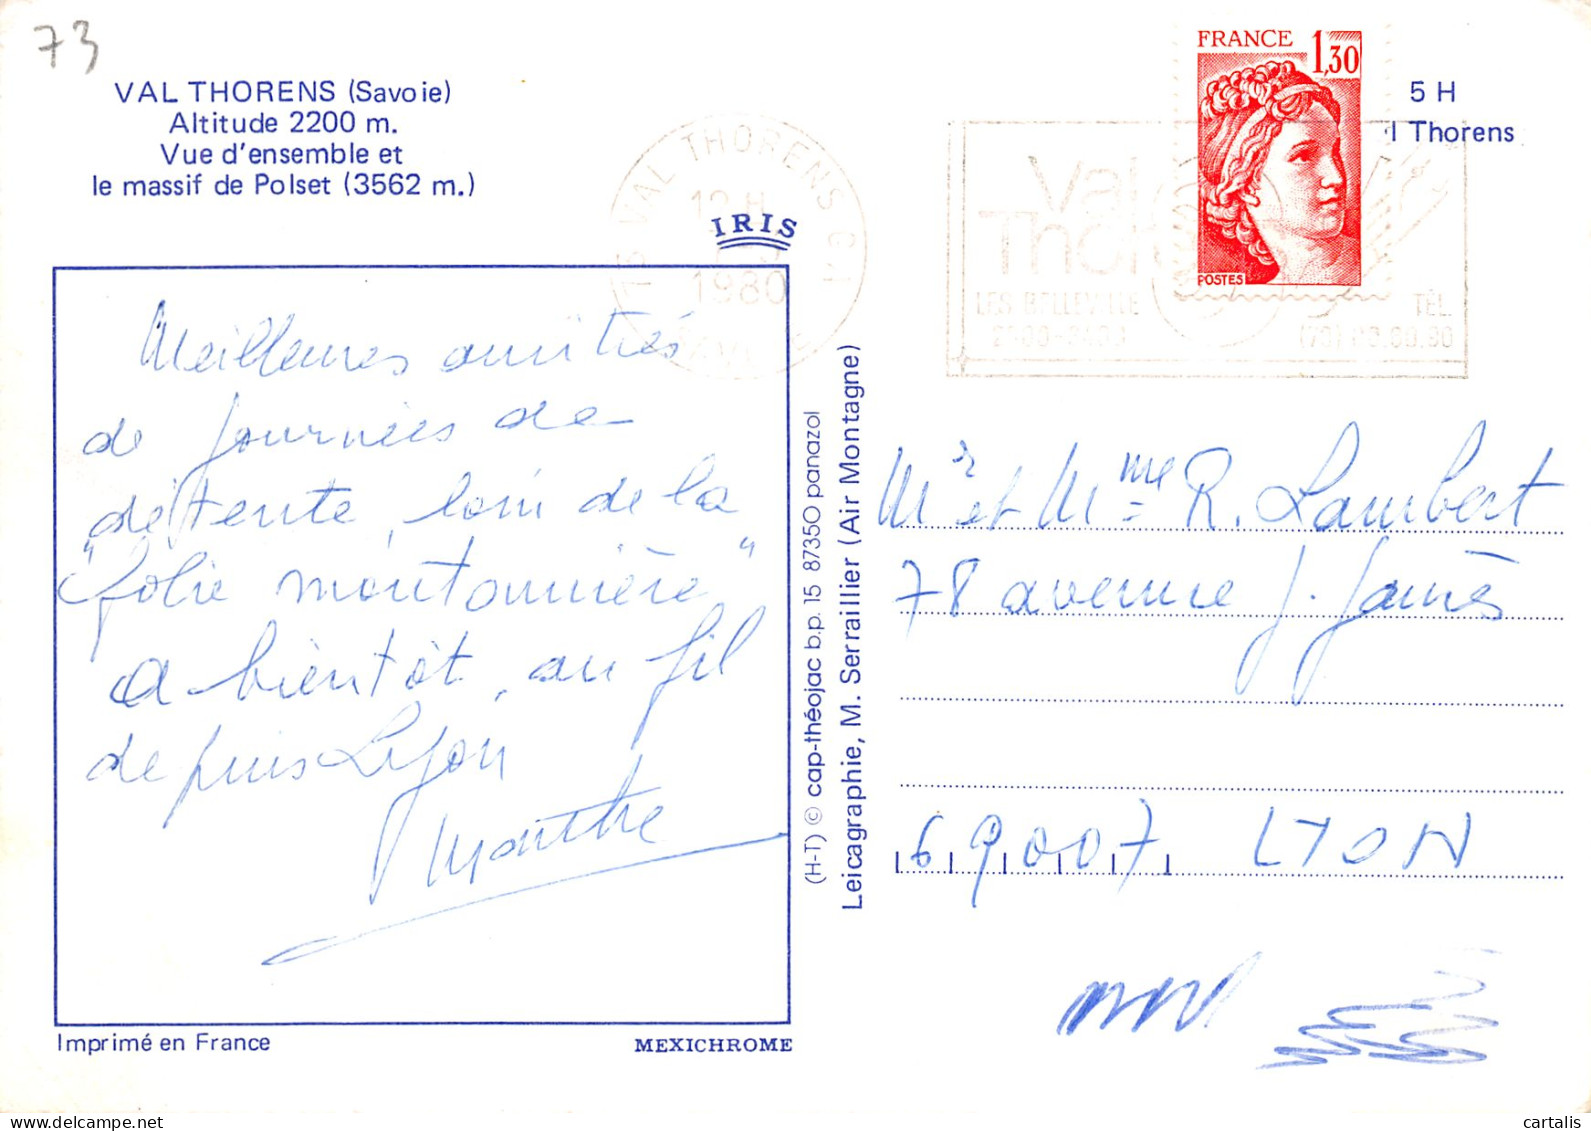 73
VAL THORENS (Savoie)
Altitude 2200 m.
Vue d'ensemble et
le massif de Polset (3562 m.)
IRIS
VAL THORENS
12 H
1980
FRANCE 1,30
POSTES
5 H
l Thorens
Val
Thor
LES BELLEVILLE
TÉL.
Meilleures amitiés
de journées de
détente, loin de la
"folie moutonnière"
A bientôt, au fil
depuis Lyon
Marthe
(H-T) © cap-théojac b.p. 15 87350 panazol
Leicagraphie, M. Serraillier (Air Montagne)
Mr et Mme R. Lambert
78 avenue J. Jaurès
69007 LYON
Imprimé en France
MEXICHROME
cartalis